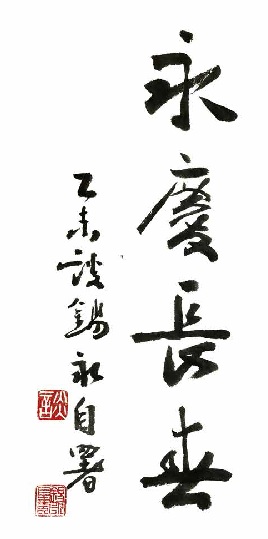 永慶長春
乙未談錫永自署